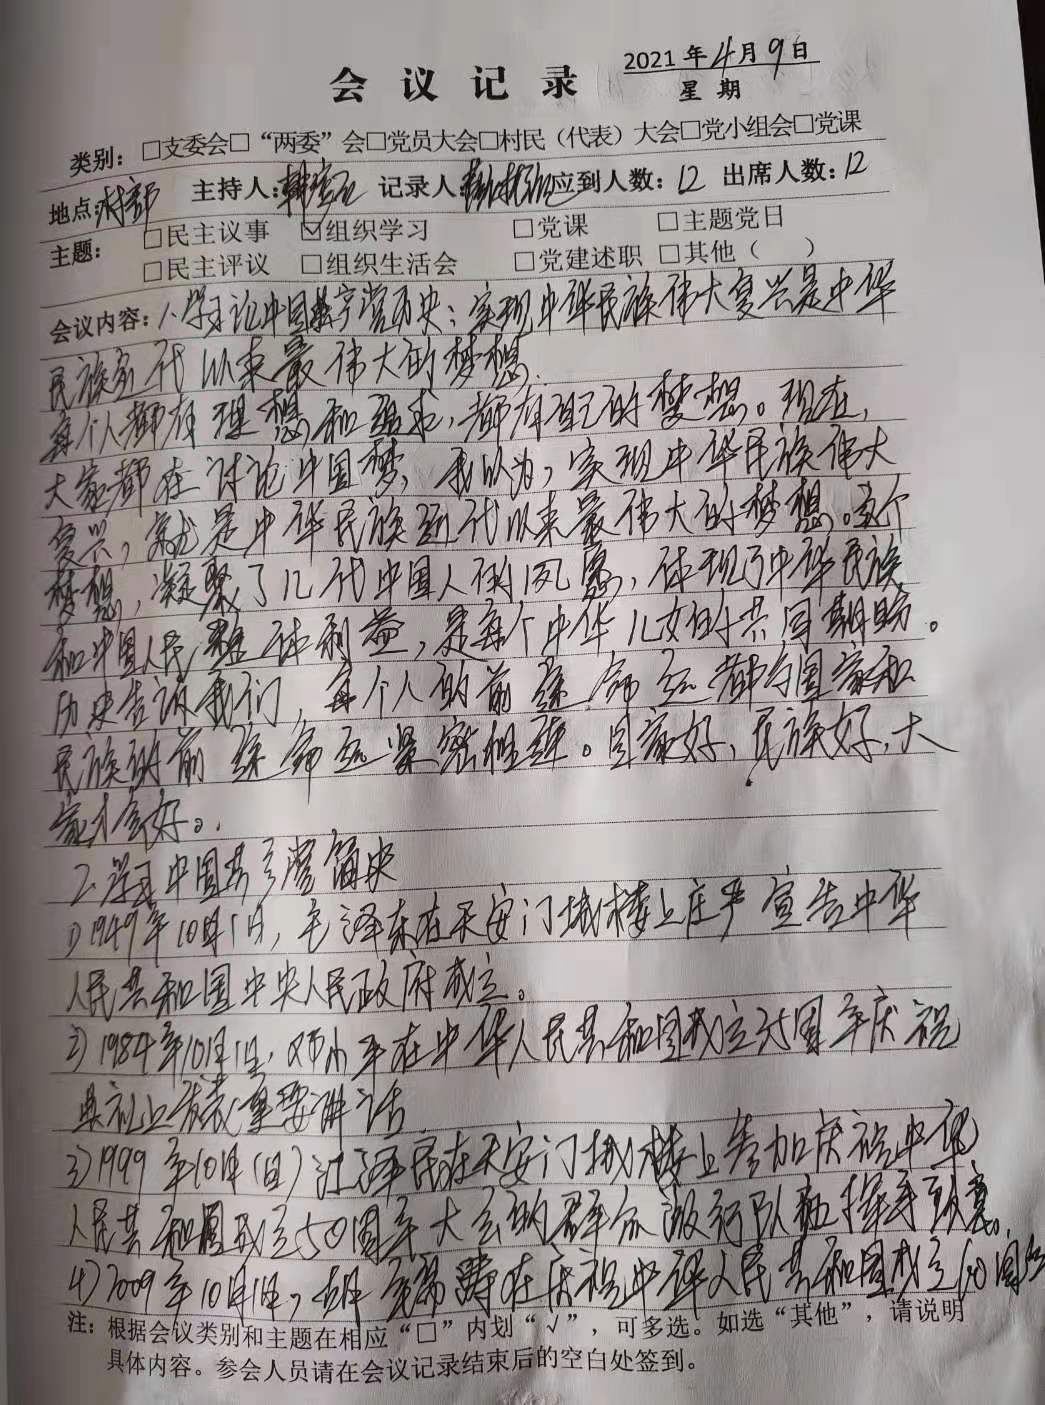 2021年4月9日
会 议 记 录
星 期
类别：□支委会□“两委”会□党员大会□村民（代表）大会□党小组会□党课
地点：村部 主持人：韩 记录人： 应到人数：12 出席人数：12
主题：□民主议事 ☑组织学习 □党课 □主题党日
□民主评议 □组织生活会 □党建述职 □其他（ ）
会议内容：1.学习论中国共产党历史：实现中华民族伟大复兴是中华
民族近代以来最伟大的梦想.
每个人都有理想和追求，都有自己的梦想。现在，
大家都在讨论中国梦，我以为，实现中华民族伟大
复兴，就是中华民族近代以来最伟大的梦想。这个
梦想，凝聚了几代中国人的夙愿，体现了中华民族
和中国人民整体利益，是每个中华儿女的共同期盼。
历史告诉我们，每个人的前途命运都与国家和
民族的前途命运紧密相连。国家好，民族好，大
家才会好。
2.学习中国共产党简史
1)1949年10月1日，毛泽东在天安门城楼上庄严宣告中华
人民共和国中央人民政府成立。
2)1984年10月1日，邓小平在中华人民共和国成立35周年庆祝
典礼上发表重要讲话
3)1999年10月1日)江泽民在天安门城楼上参加庆祝中华
人民共和国成立50周年大会的群众游行队伍挥手致意。
4)2009年10月1日，胡锦涛在庆祝中华人民共和国成立60周年
注：根据会议类别和主题在相应“□”内划“√”，可多选。如选“其他”，请说明
具体内容。参会人员请在会议记录结束后的空白处签到。